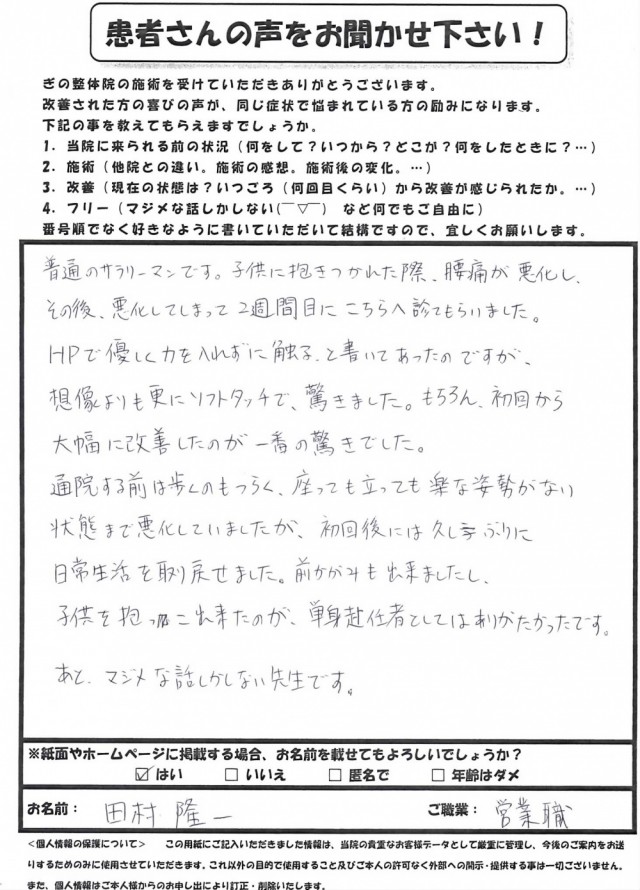 患者さんの声をお聞かせ下さい！
ぎの整体院の施術を受けていただきありがとうございます。
改善された方の喜びの声が、同じ症状で悩まれている方の励みになります。
下記の事を教えてもらえますでしょうか。
1．当院に来られる前の状況（何をして？いつから？どこが？何をしたときに？…）
2．施術（他院との違い。施術の感想。施術後の変化。…）
3．改善（現在の状態は？いつごろ（何回目くらい）から改善が感じられたか。…）
4．フリー（マジメな話しかしない(￣▽￣)　など何でもご自由に）
番号順でなく好きなように書いていただいて結構ですので、宜しくお願いします。
普通のサラリーマンです。子供に抱きつかれた際、腰痛が悪化し、
その後、悪化してしまって2週間目にこちらへ診てもらいました。
HPで優しく力を入れずに触る、と書いてあったのですが、
想像よりも更にソフトタッチで、驚きました。もちろん、初回から
大幅に改善したのが一番の驚きでした。
通院する前は歩くのもつらく、座っても立っても楽な姿勢がない
状態まで悪化していましたが、初回後には久しぶりに
日常生活を取り戻せました。前かがみも出来ましたし、
子供を抱っこ出来たのが、単身赴任者としてはありがたかったです。
あと、マジメな話しかしない先生です。
※紙面やホームページに掲載する場合、お名前を載せてもよろしいでしょうか？
☑ はい　☐ いいえ　☐ 匿名で　☐ 年齢はダメ
お名前： 田村 隆一　ご職業： 営業職
＜個人情報の保護について＞　この用紙にご記入いただきました情報は、当院の貴重なお客様データとして厳重に管理し、今後のご案内をお送
りするためのみに使用させていただきます。これ以外の目的で使用すること及びご本人の許可なく外部への開示・提供する事は一切ございません。
また、個人情報はご本人様からのお申し出により訂正・削除いたします。